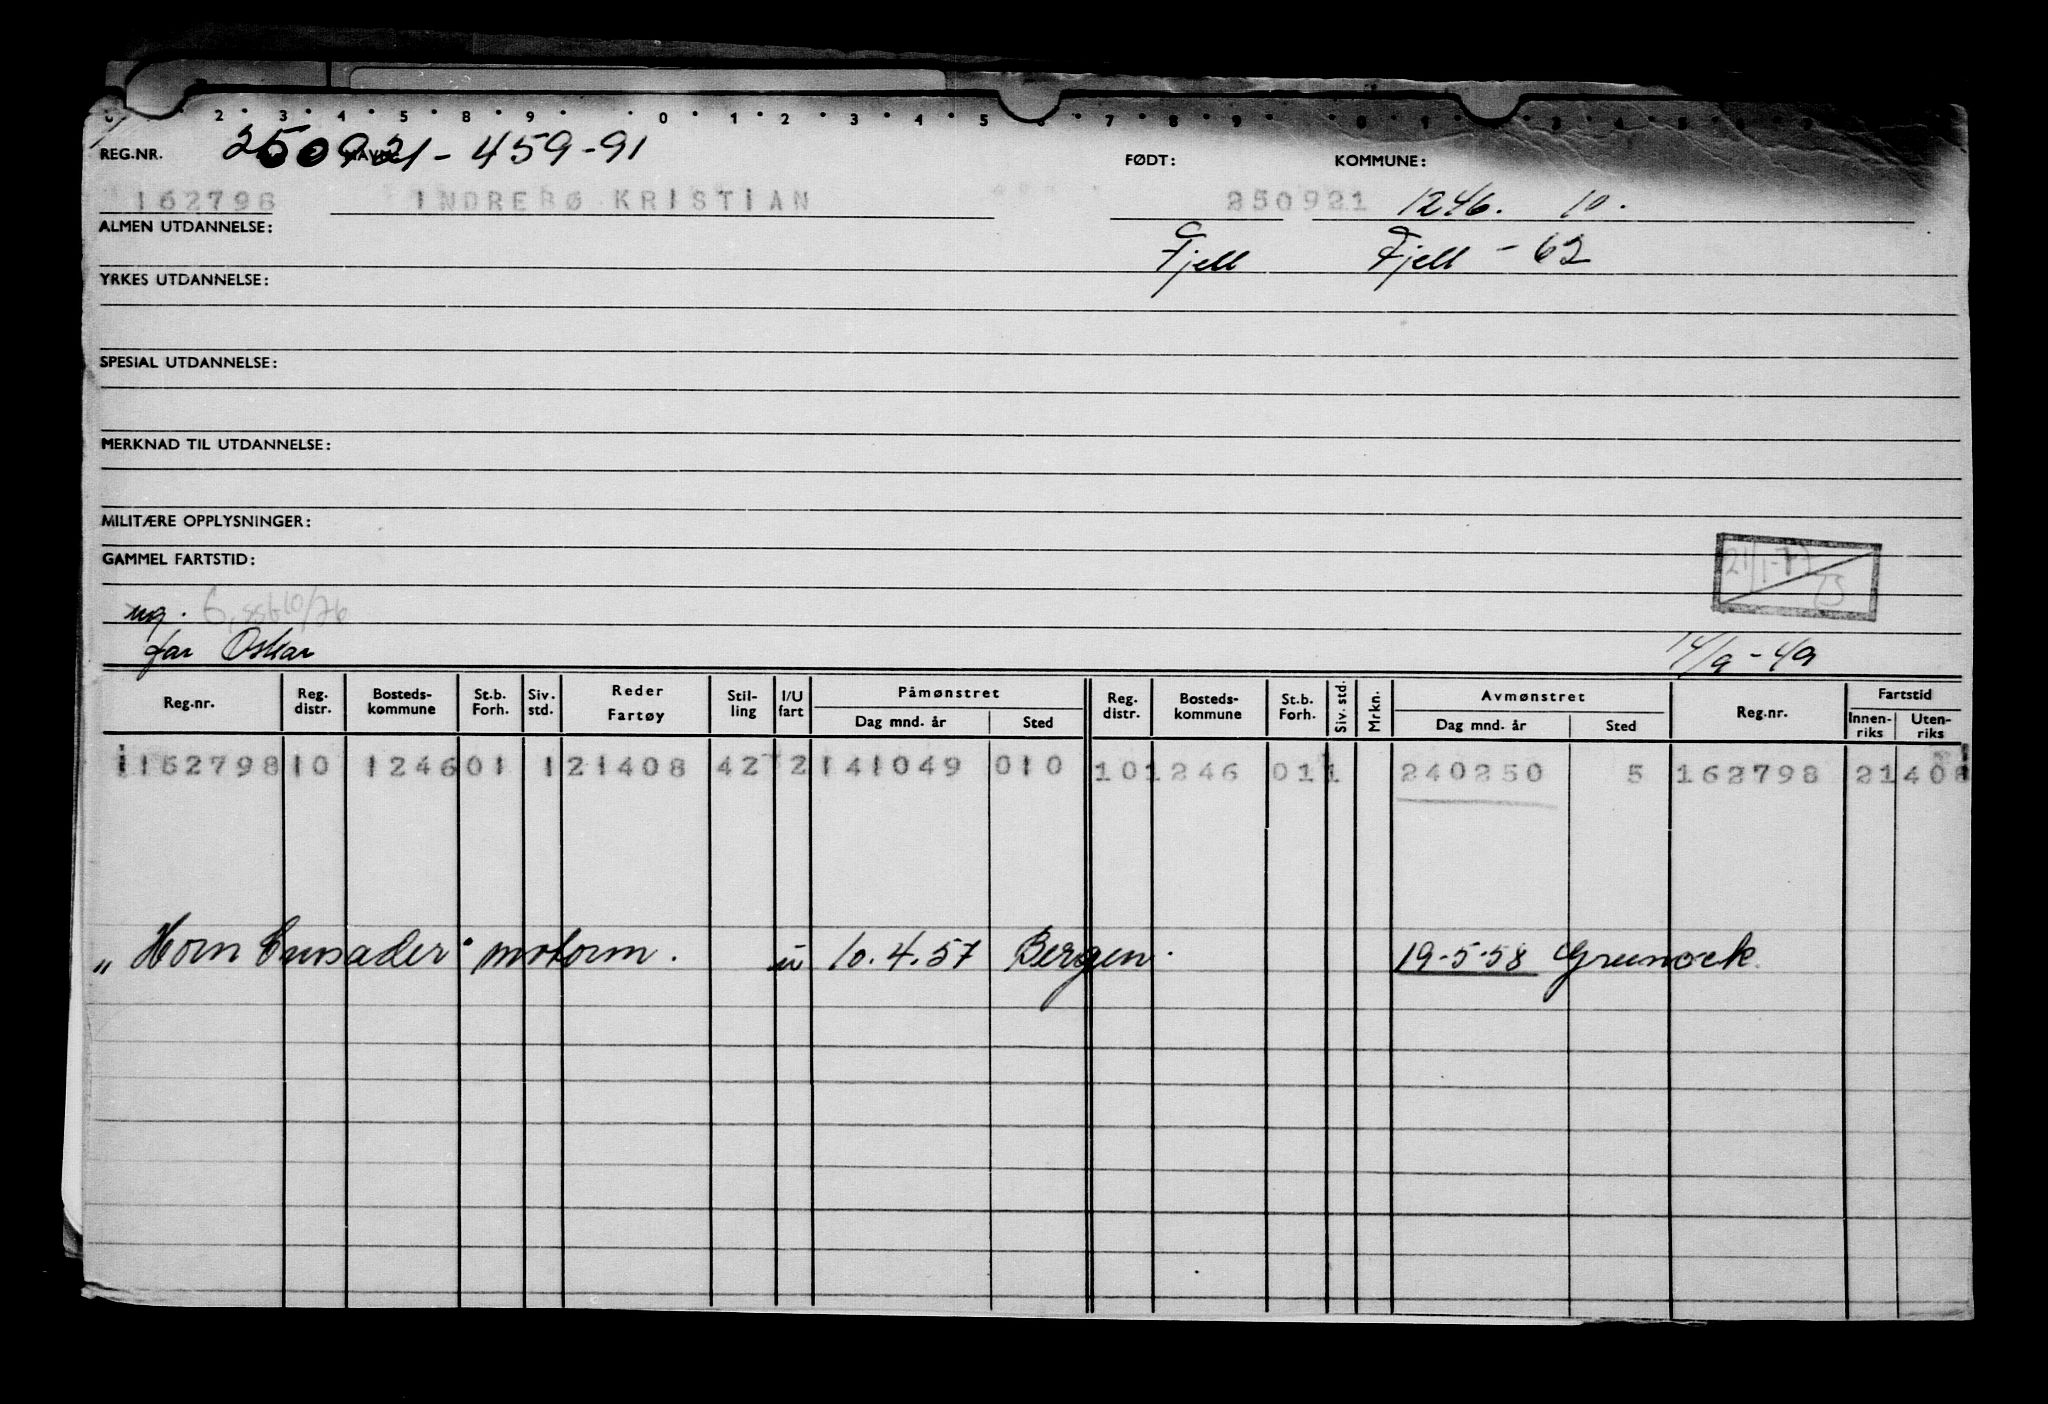 2 3 4 5 8 9 0 1 2 3 4 5 6 7 8 9 0 1
REG.NR. 250921-459-91 FØDT: KOMMUNE:
162798 INDREBØ KRISTIAN 250921 1246. 10.
ALMEN UTDANNELSE: Fjell Fjell - 62
YRKES UTDANNELSE:
SPESIAL UTDANNELSE:
MERKNAD TIL UTDANNELSE:
MILITÆRE OPPLYSNINGER:
GAMMEL FARTSTID:
21/1-77
ug.
far Oskar 14/9-49
Reg.nr. Reg. distr. Bosteds-kommune St.b. Forh. Siv. std. Reder Fartøy Stil-ling I/U fart Påmønstret Dag mnd. år Sted Reg. distr. Bosteds-kommune St.b. Forh. Siv. std. Mrkn. Avmønstret Dag mnd. år Sted Reg.nr. Fartstid Innen-riks Uten-riks
1162798 10 1246 01 1 21408 42 2 141049 010 10 1246 01 1 240250 5 162798 21 408
"Horn Crusader" motorm. u 10.4.57 Bergen. 19-5-58 Greenock.